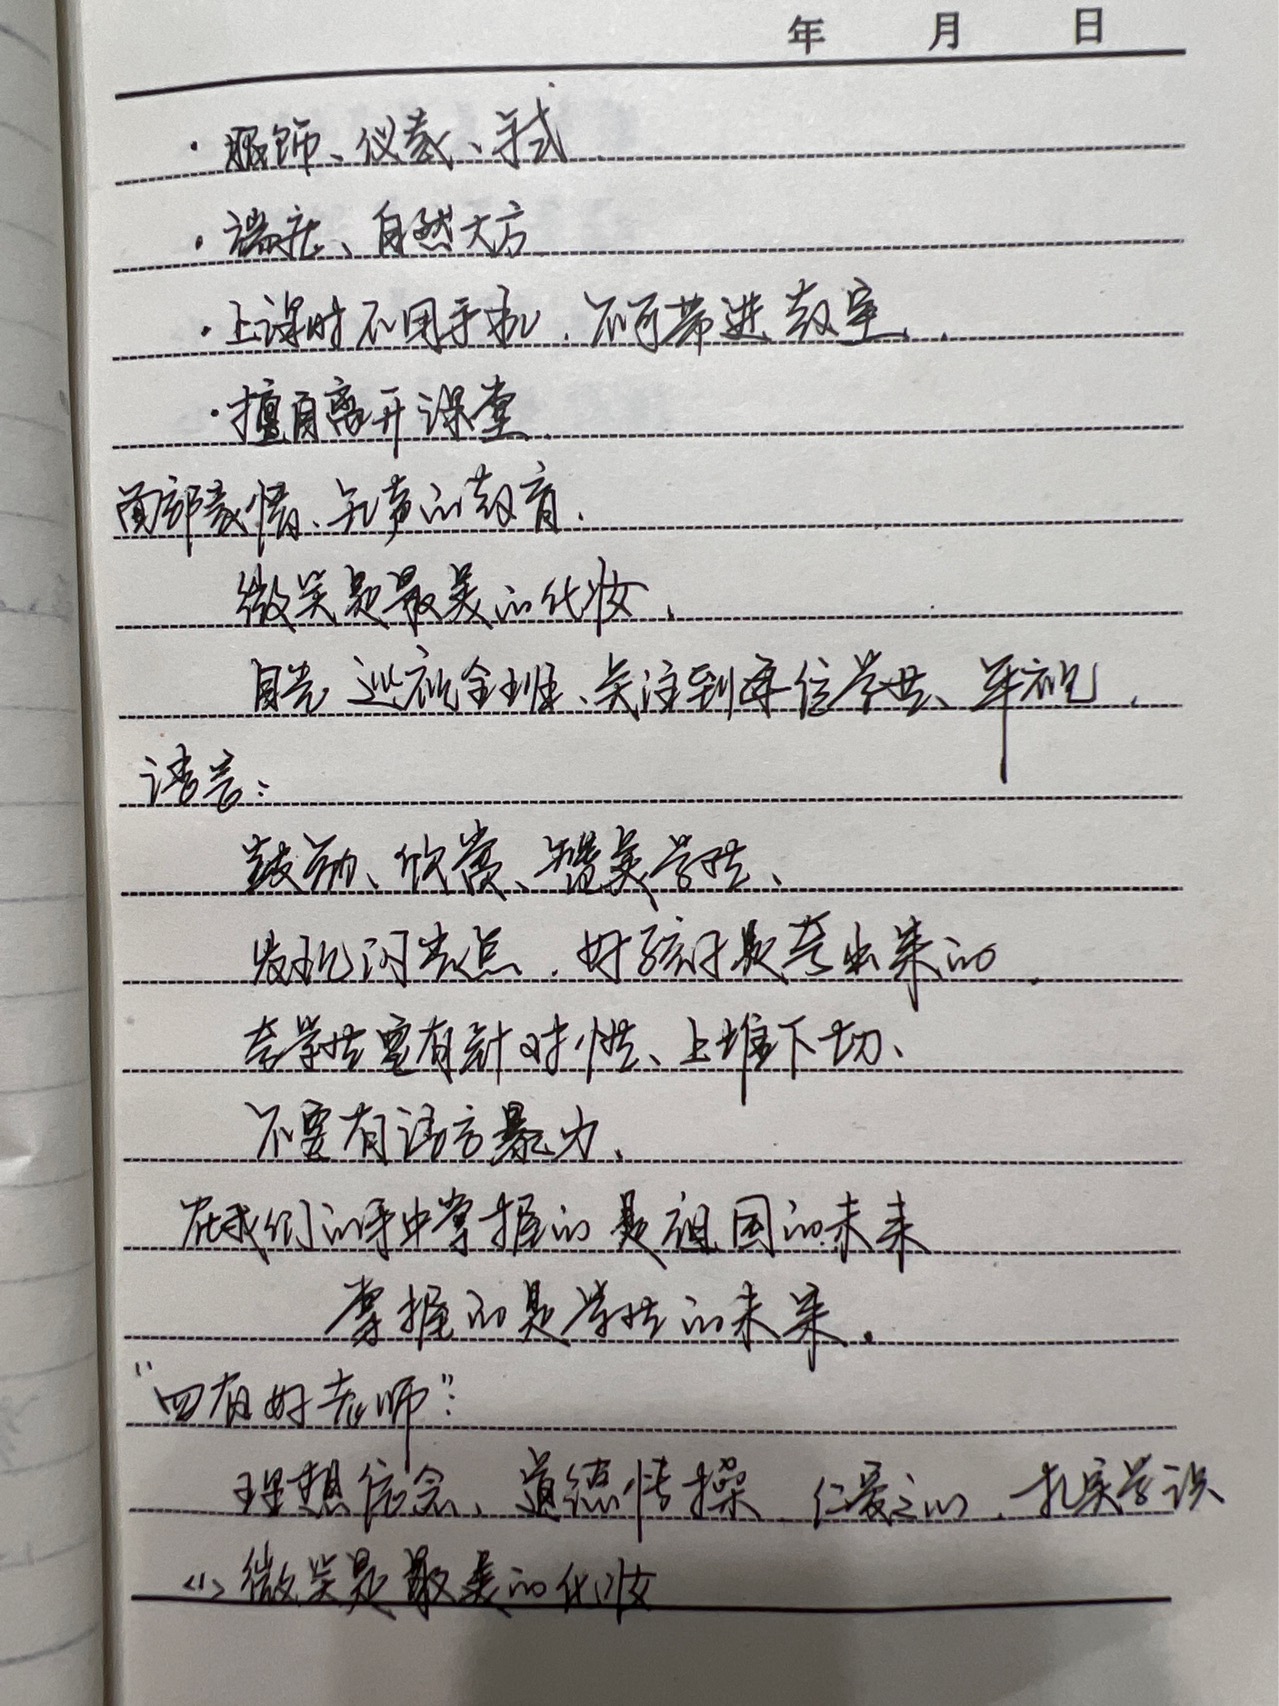 年 月 日
· 服饰、仪表、
· 端庄、自然大方
· 上课时不用手机，不可带进教室，
· 擅自离开课堂
面部表情、无声的教育，
微笑是最美的化妆，
目光 巡视全班、关注到每位学生、
语言：
鼓励、欣赏、赞美学生、
发现闪光点，好孩子是夸出来的，
夸学生要有针对性、上堆下切、
不要有语言暴力、
在我们的手中掌握的是祖国的未来
掌握的是学生的未来。
“四有好老师”：
理想信念、道德情操、仁爱之心、扎实学识
<1> 微笑是最美的化妆